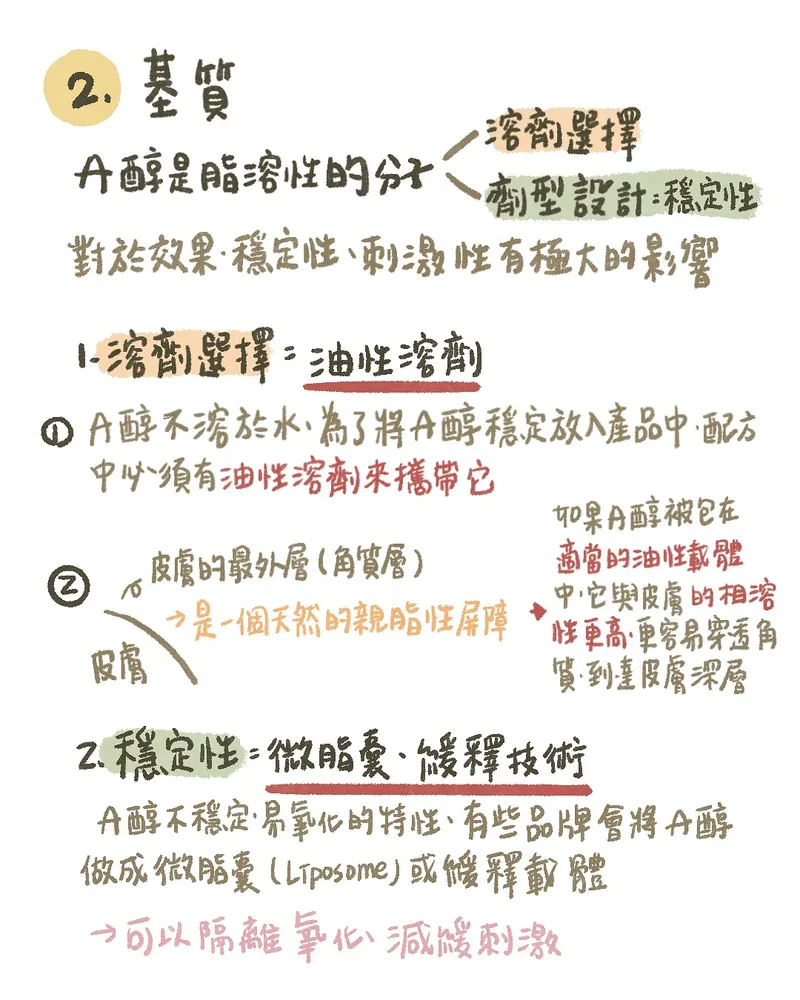 2. 基質
A醇是脂溶性的分子
溶劑選擇
劑型設計:穩定性
對於效果、穩定性、刺激性有極大的影響
1. 溶劑選擇 = 油性溶劑
① A醇不溶於水、為了將A醇穩定放入產品中、配方
中必須有油性溶劑來攜帶它
②
皮膚的最外層(角質層)
→是一個天然的親脂性屏障
皮膚
如果A醇被包在
適當的油性載體
中、它與皮膚的相溶
性更高、更容易穿透角
質、到達皮膚深層
2. 穩定性 = 微脂囊、緩釋技術
A醇不穩定、易氧化的特性、有些品牌會將A醇
做成微脂囊(Liposome)或緩釋載體
→可以隔離氧化、減緩刺激